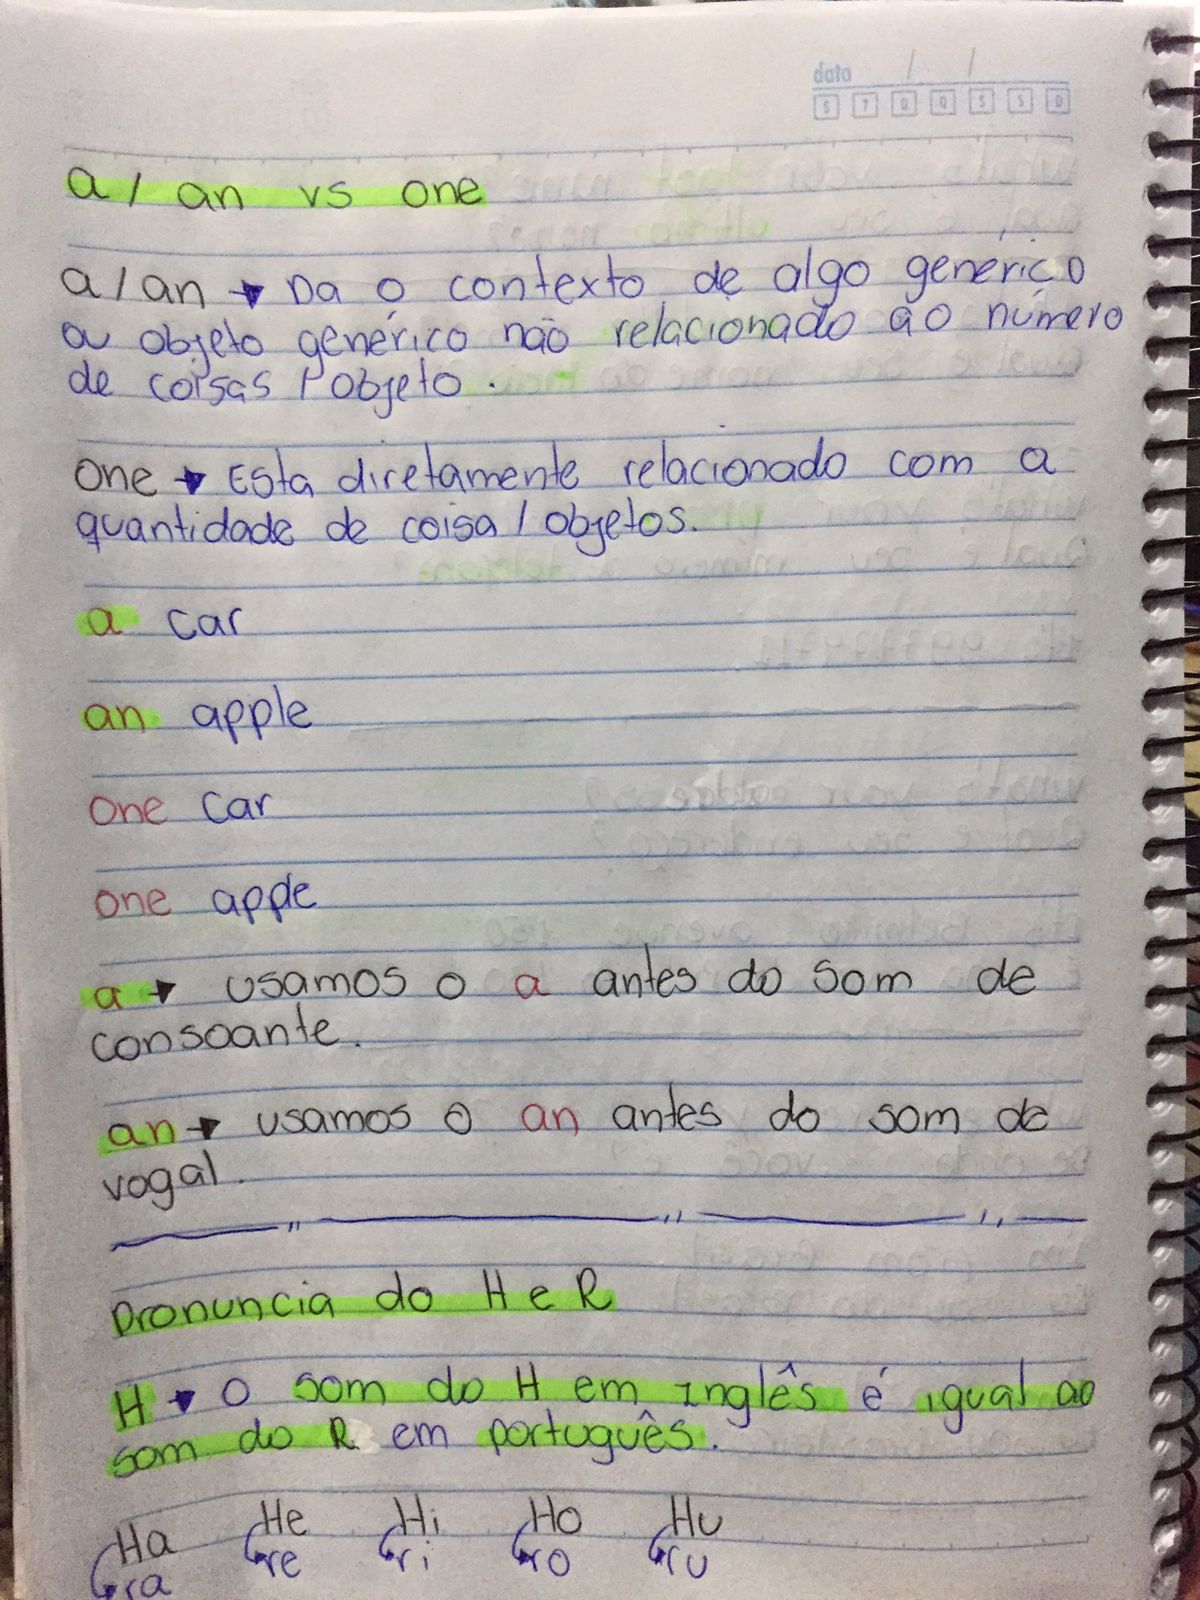 data / /
S T Q Q S S D
a / an vs one
a / an → Da o contexto de algo generico
ou objeto genérico não relacionado ao número
de coisas / objeto.
one → Esta diretamente relacionado com a
quantidade de coisa / objetos.
a car
an apple
one car
one apple
a → usamos o a antes do som de
consoante.
an → usamos o an antes do som de
vogal.
Pronuncia do H e R
H → O som do H em inglês é igual ao
som do R em português.
Ha He Hi Ho Hu
ra re ri ro ru